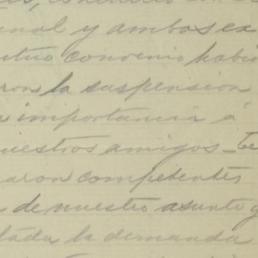 nal y ambos ex
nuestro convenio habi
ron la suspension
importancia á
nuestros amigos_ te
aron competentes
de nuestro asunto y
lada la demanda